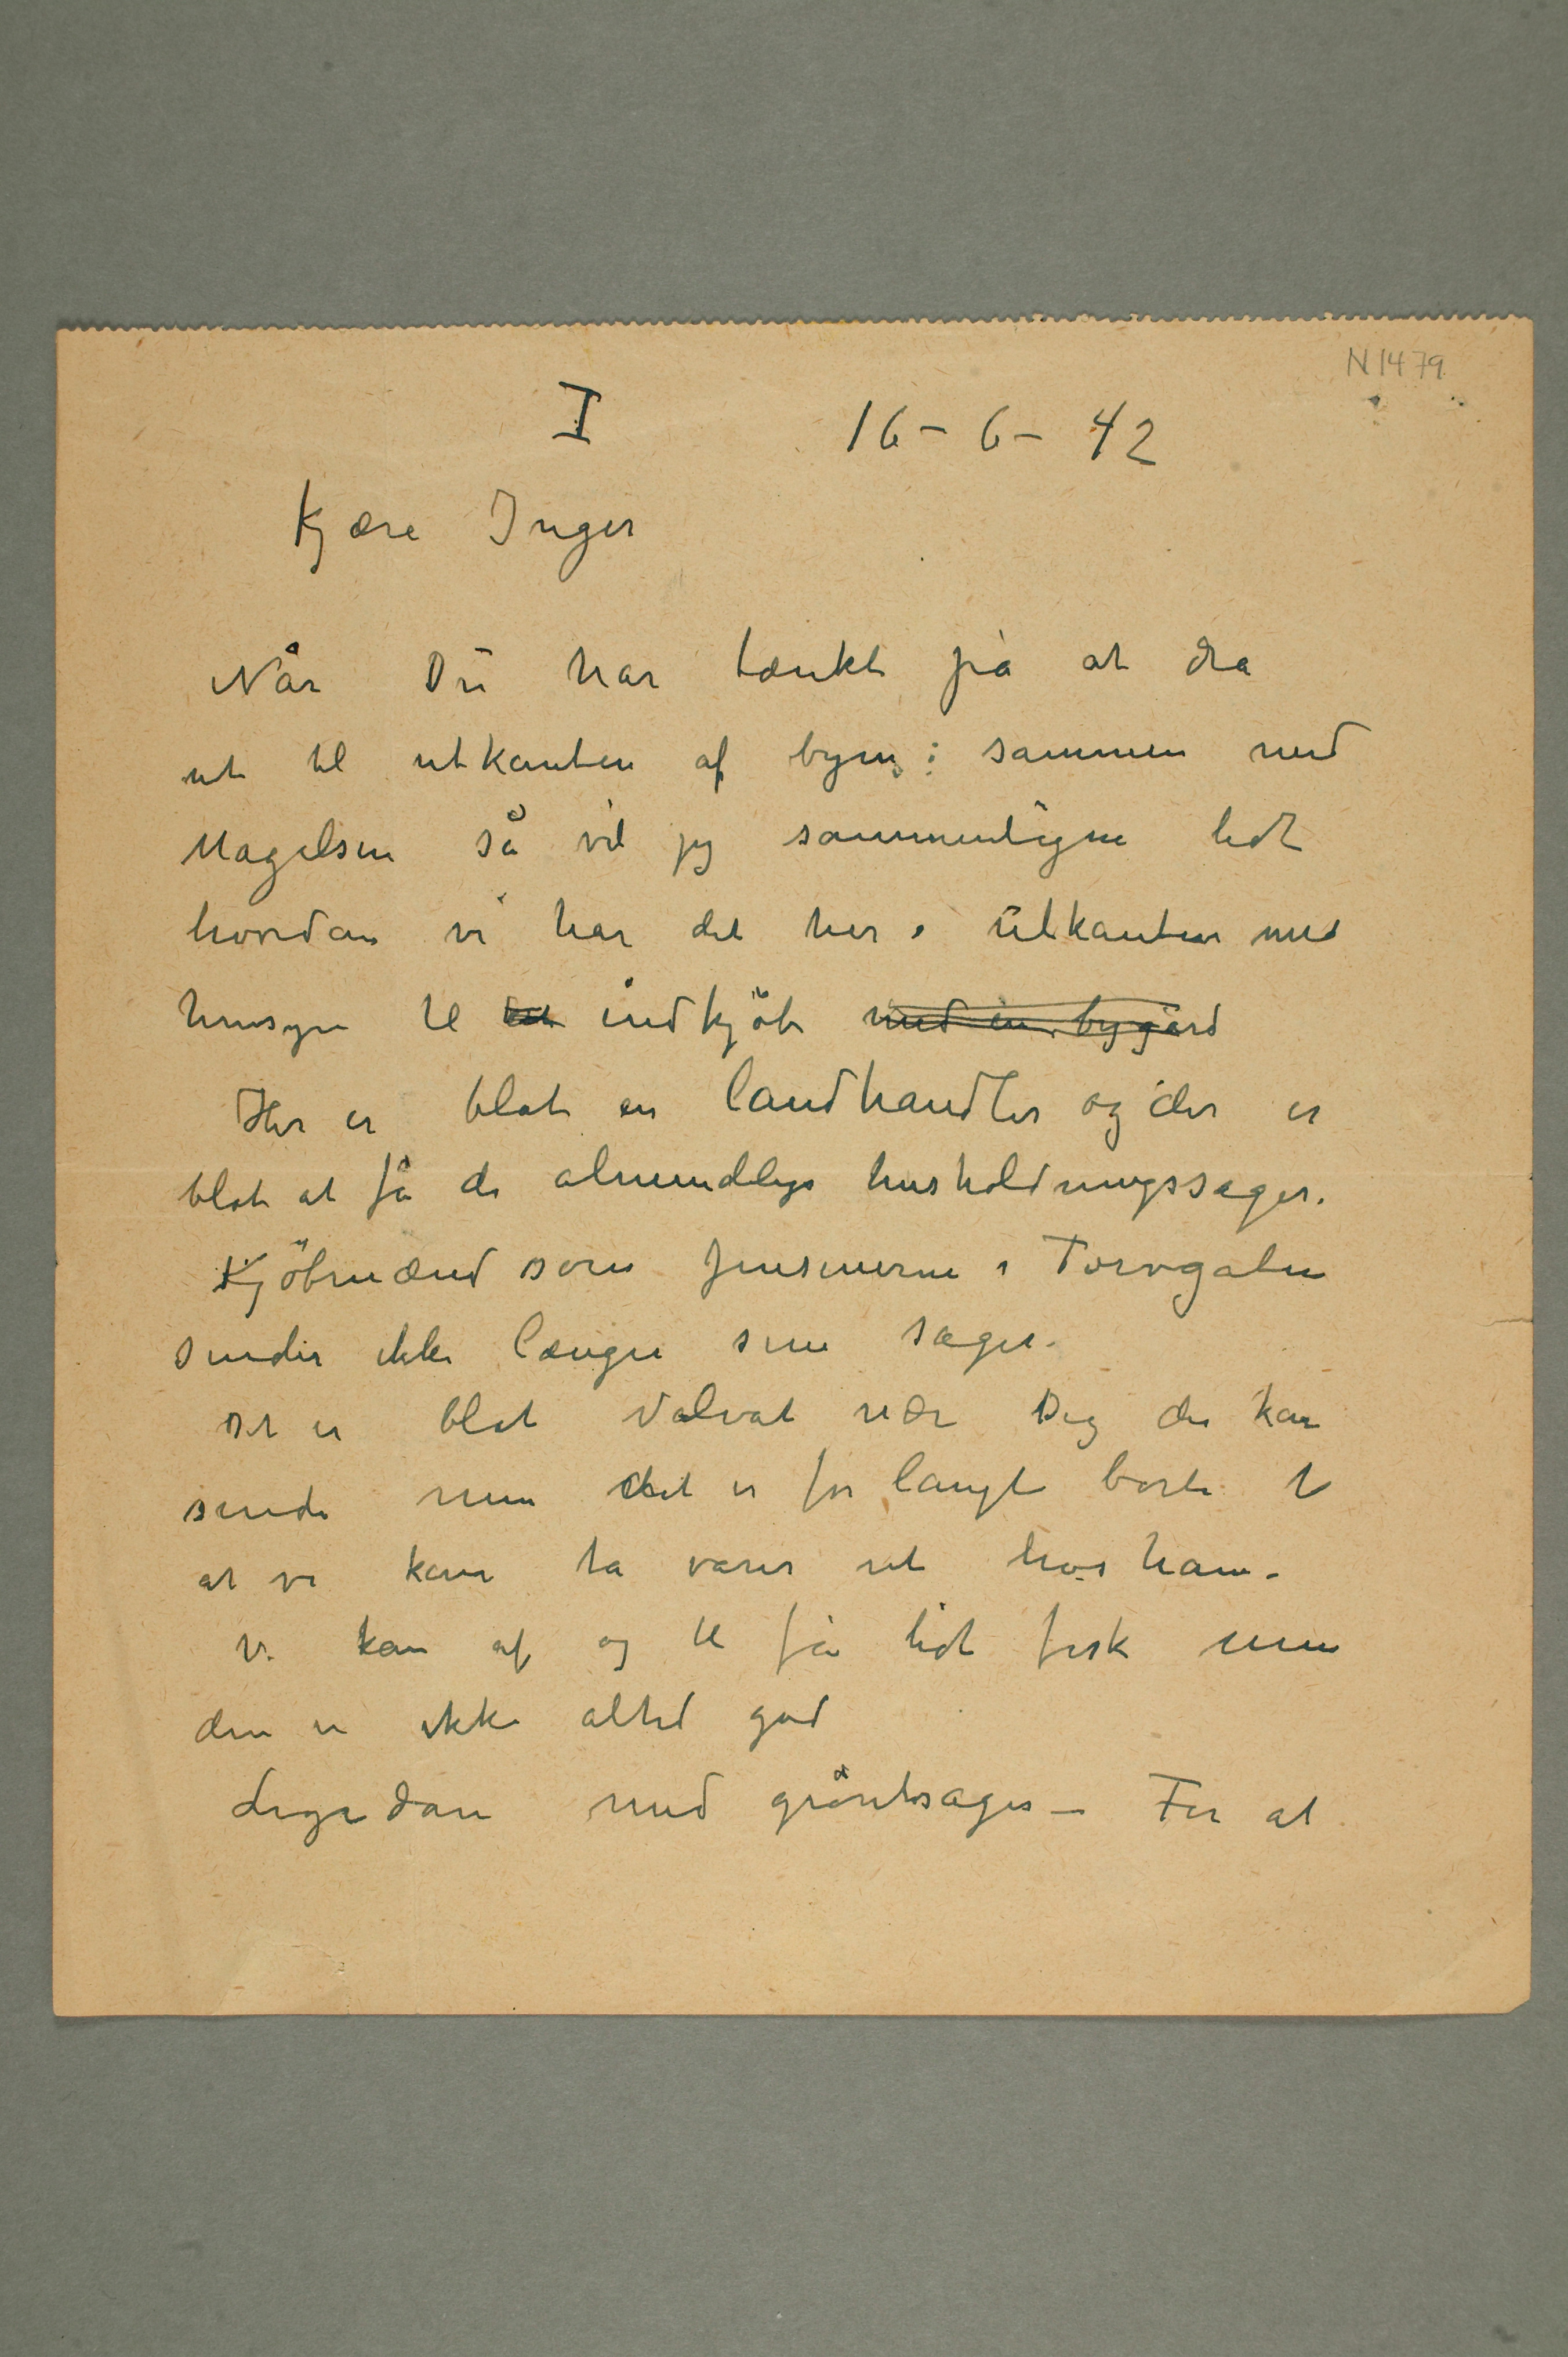 N 1479
I 16-6-42
Kjære Inger
Når Du har tænkt på at dra
ut til utkanten af byen; sammen med
Magelsen så vil jeg sammenligne lidt
hvordan vi har det her i utkanten med
hensyn til indkjöb med en bygård
Her er blot en landhandler og der er
blot at få de almindelige husholdningssager.
Kjöbmænd som Jensenerne i Torvgaten
sender ikke længre sine sager.
Det er blot Valvat nær Dig der kan
sende men det er for langt borte til
at vi kan ta varer ut hos ham.
Vi kan af og til få lidt fisk men
den er ikke altid god
Ligedan med gröntsager – For at